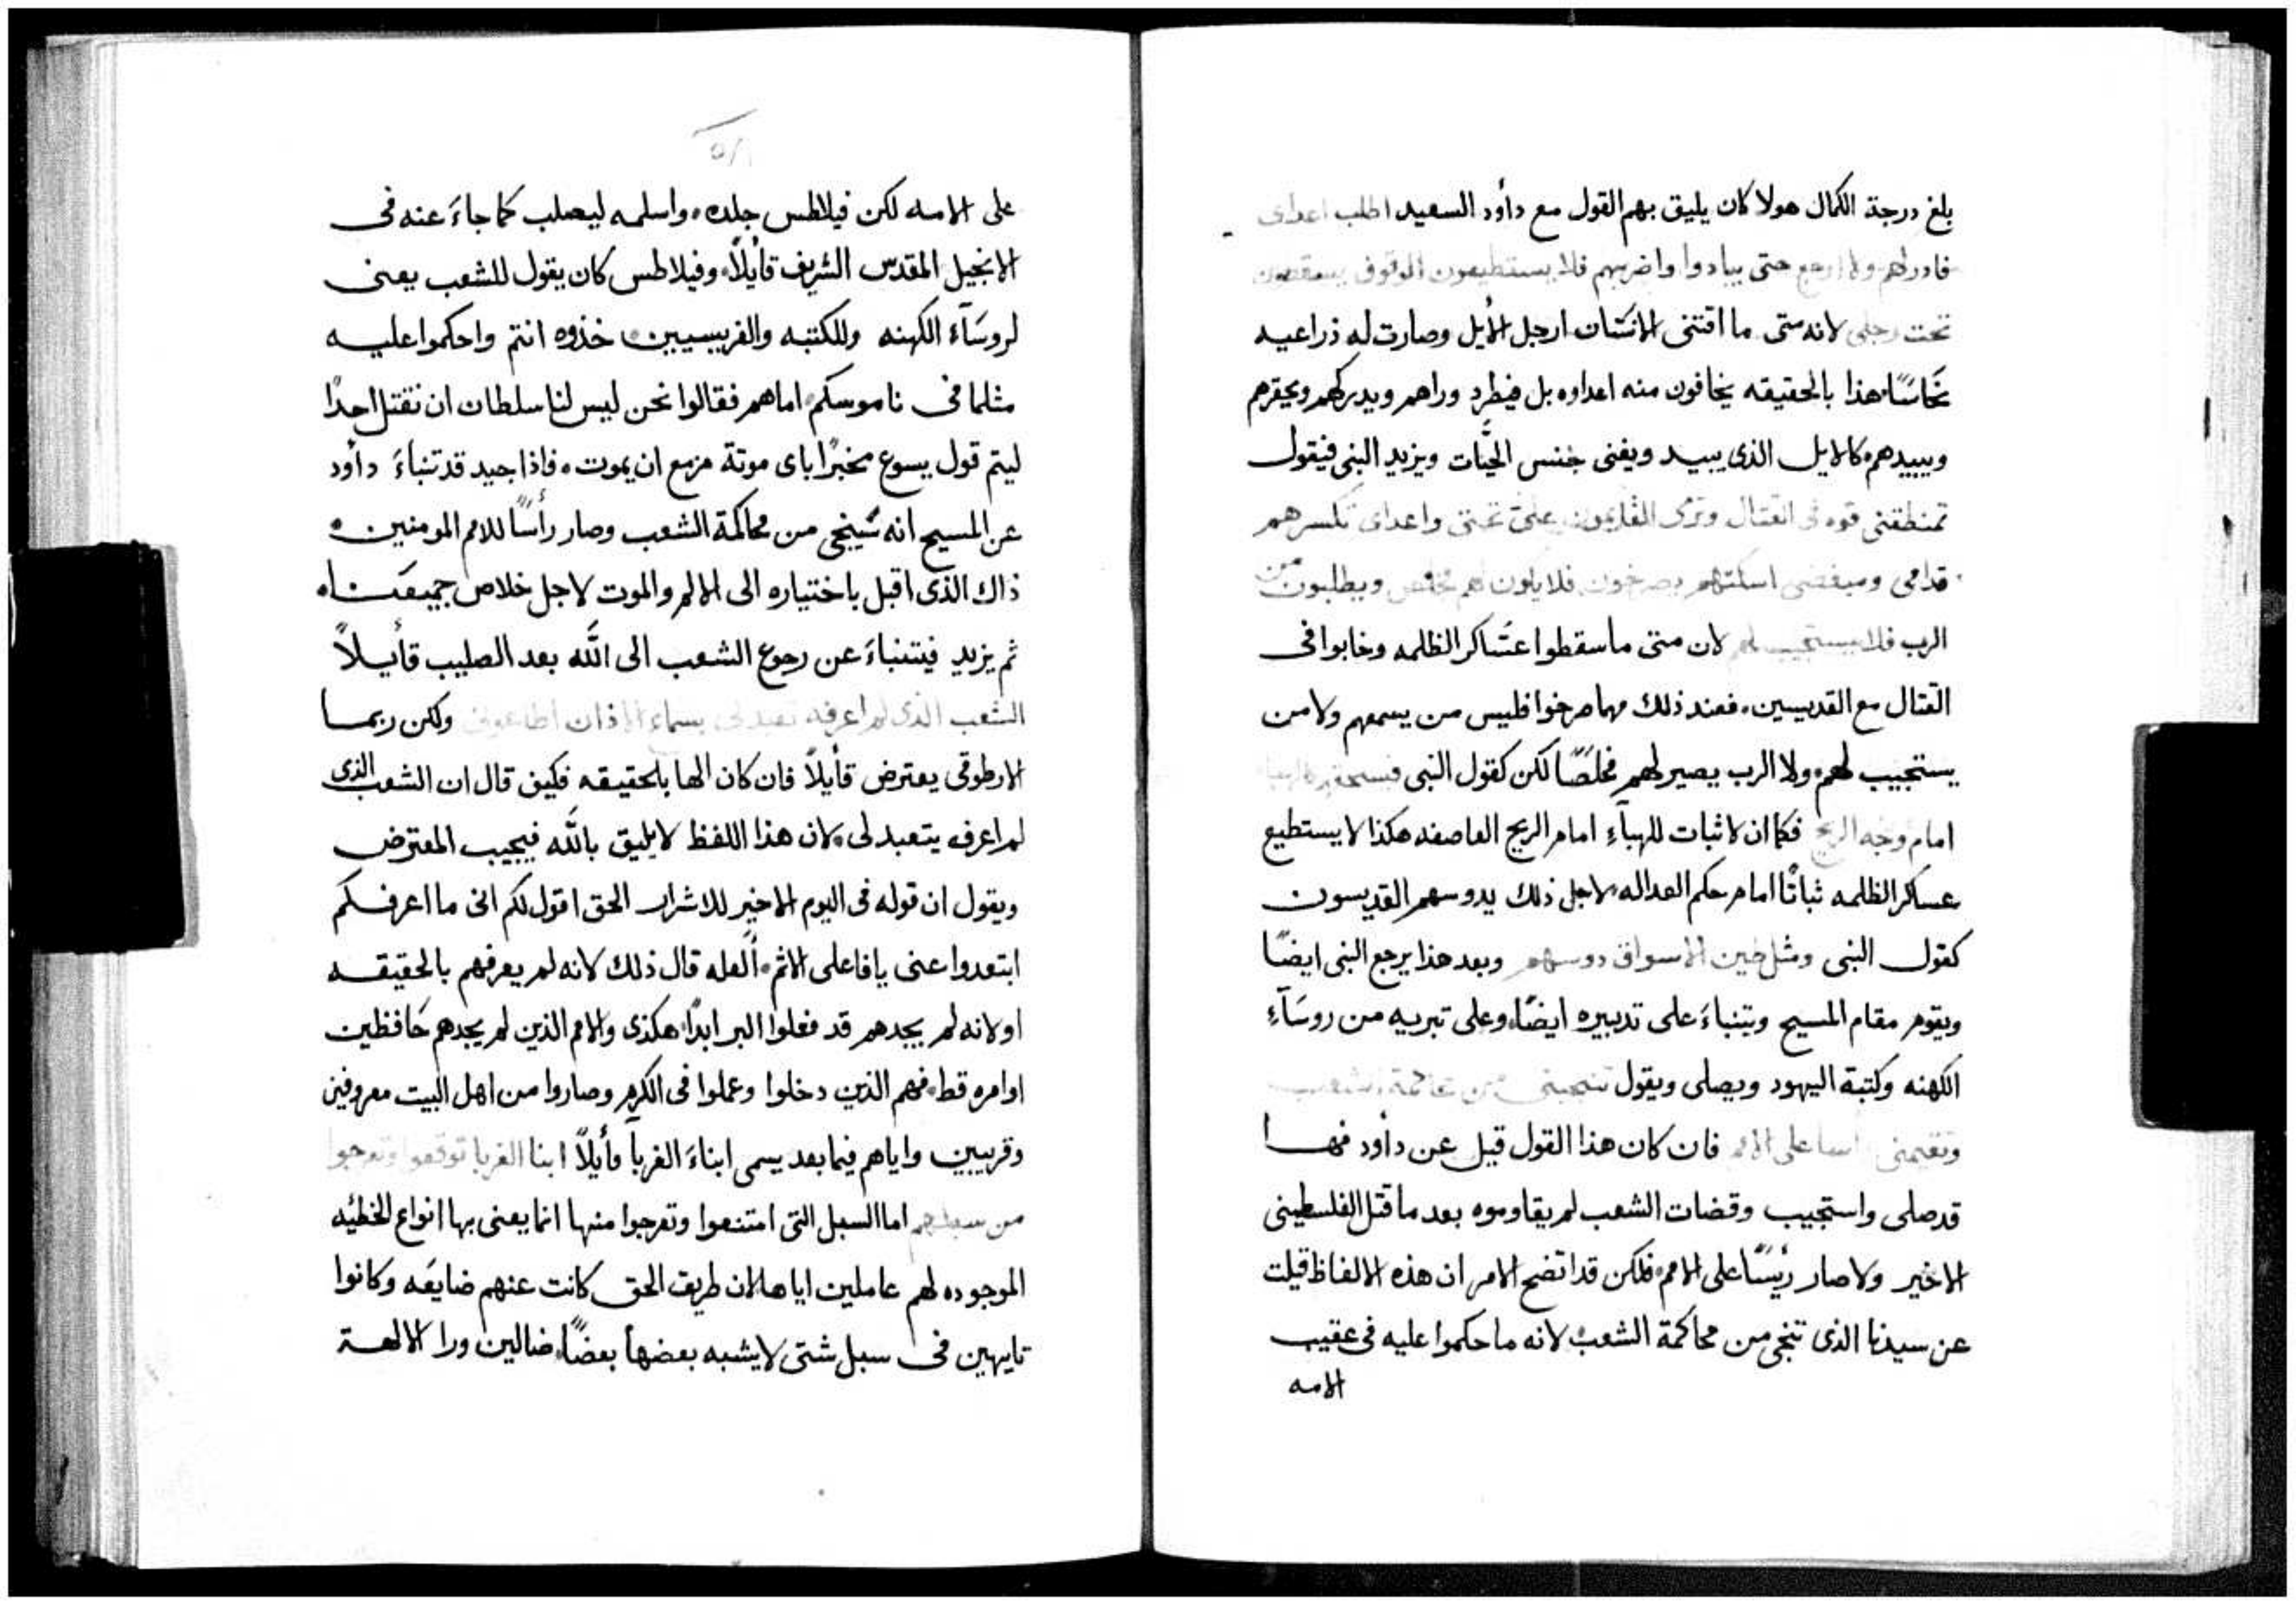 بلغ درجة الكمال هولا كان يليق بهم القول مع داود السعيد اطلب اعداى
فادركهم ولا ارجع حتى يبادوا واضربهم فلا يستطيعون الوقوف يسقطون
تحت رجلى لانه متى ما اقتنى الانسان ارجل الأيل وصارت له ذراعيه
نحاسًا هذا بالحقيقه يخافون منه اعداوه بل فيطرد وراهم ويدركهم ويحقرهم
ويبيدهم كالايل الذى يبيد ويفنى جنس الحيَّات ويزيد النبى فيقول
تمنطقنى قوه فى القتال وترى القايمون علىّ تحتى واعداى تكسرهم
قدامى ومبغضى اسكتهم يصرخون فلا يكون لهم مخلص ويطلبون من
الرب فلا يستجيب لهم لان متى ما سقطوا عسَاكر الظلمه وخابوا فى
القتال مع القديسين، فعند ذلك مهما صرخوا فليس من يسمعهم ولا من
يستجيب لهم ولا الرب يصير لهم مخلصًا لكن كقول النبى فسحقهم كالهباء
امام وجه الريح فكما ان لا ثبات للهبآءِ امام الريح العاصفه هكذا لا يستطيع
عساكر الظلمه ثباتًا امام حكم العداله لاجل ذلك يدوسهم القديسون
كقول النبى ومثل طين الاسواق دوسهم وبعد هذا يرجع النبى ايضًا
ويقوم مقام المسيح ويتنباءَ على تدبيره ايضًا، وعلى تبريه من روسَآءِ
الكهنه وكتبة اليهود ويصلى ويقول تنجينى من محاكمة الشعب
وتقيمنى راسا على الامم فان كان هذا القول قيل عن داود فها
قد صلى واستجيب وقضات الشعب لم يقاوموه بعد ما قتل الفلسطينى
الاخير ولا صار رئيسًا على الامم، فلكن قد اتضح الامر ان هذه الالفاظ قيلت
عن سيدنا الذى تنجى من محاكمة الشعب لانه ما حكموا عليه فى عقيب
الامه
على الامه لكن فيلاطس جلده، واسلمه ليصلب كما جاءَ عنه فى
الانجيل المقدس الشريف قأيلاً، وفيلاطس كان يقول للشعب يعنى
لروسَآء الكهنه وللكتبه والفريسيين، خذوه انتم واحكموا عليه
مثلما فى ناموسكم، اما هم فقالوا نحن ليس لنا سلطان ان نقتل احدًا
ليتم قول يسوع مخبرًا باى موتة مزمع ان يموت، فاذا جيد قد تنباءَ داود
عن المسيح انه سُينجى من محاكمة الشعب وصار رأسًا للامم المومنين،
ذاك الذى اقبل باختياره الى الالم والموت لاجل خلاص جميعنا،
ثم يزيد فيتنباءَ عن رجوع الشعب الى الله بعد الصليب قأيلاً
الشعب الذى لم اعرفه تعبد لى بسماع الاذان اطاعونى ولكن ربما
الارطوقى يعترض قأيلاً فان كان الها بالحقيقه فكيف قال ان الشعب الذى
لم اعرفه يتعبد لى، لان هذا اللفظ لا يليق بالله فيجيب المعترض
ويقول ان قوله فى اليوم الاخير للاشرار الحق اقول لكم انى ما اعرفكم
ابتعدوا عنى يا فاعلى الاثم، ألعله قال ذلك لانه لم يعرفهم بالحقيقه
او لانه لم يجدهم قد فعلوا البر ابدًا، هكذى والامم الذين لم يجدهم حَافظين
اوامره قط، فهم الذين دخلوا وعملوا فى الكرم وصاروا من اهل البيت معروفين
وقريبين واياهم فيما بعد يسمى ابناءَ الغربآ قأيلاً ابنا الغربا توقعوا وتعرجوا
من سبلهم اما السبل التى امتنعوا وتعرجوا منها انما يعنى بها انواع الخطئيه
الموجوده لهم عاملين اياها لان طريق الحق كانت عنهم ضايعَه وكانوا
تايهين فى سبل شتى لا يشبه بعضهأ بعضًا، ضالين ورا الالهة